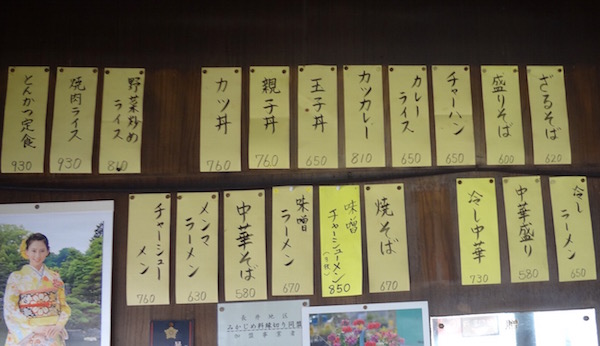 ざるそば
620
盛りそば
600
チャーハン
650
カレー
ライス
650
カツカレー
810
玉子丼
650
親子丼
760
カツ丼
760
野菜炒め
ライス
810
焼肉ライス
930
とんかつ定食
930
冷し
ラーメン
650
中華盛り
580
冷し中華
730
焼そば
670
味噌
チャーシューメン
850
味噌
ラーメン
670
中華そば
580
メンマ
ラーメン
630
チャーシュー
メン
760
みかじめ料縁切り同盟
加盟事業者